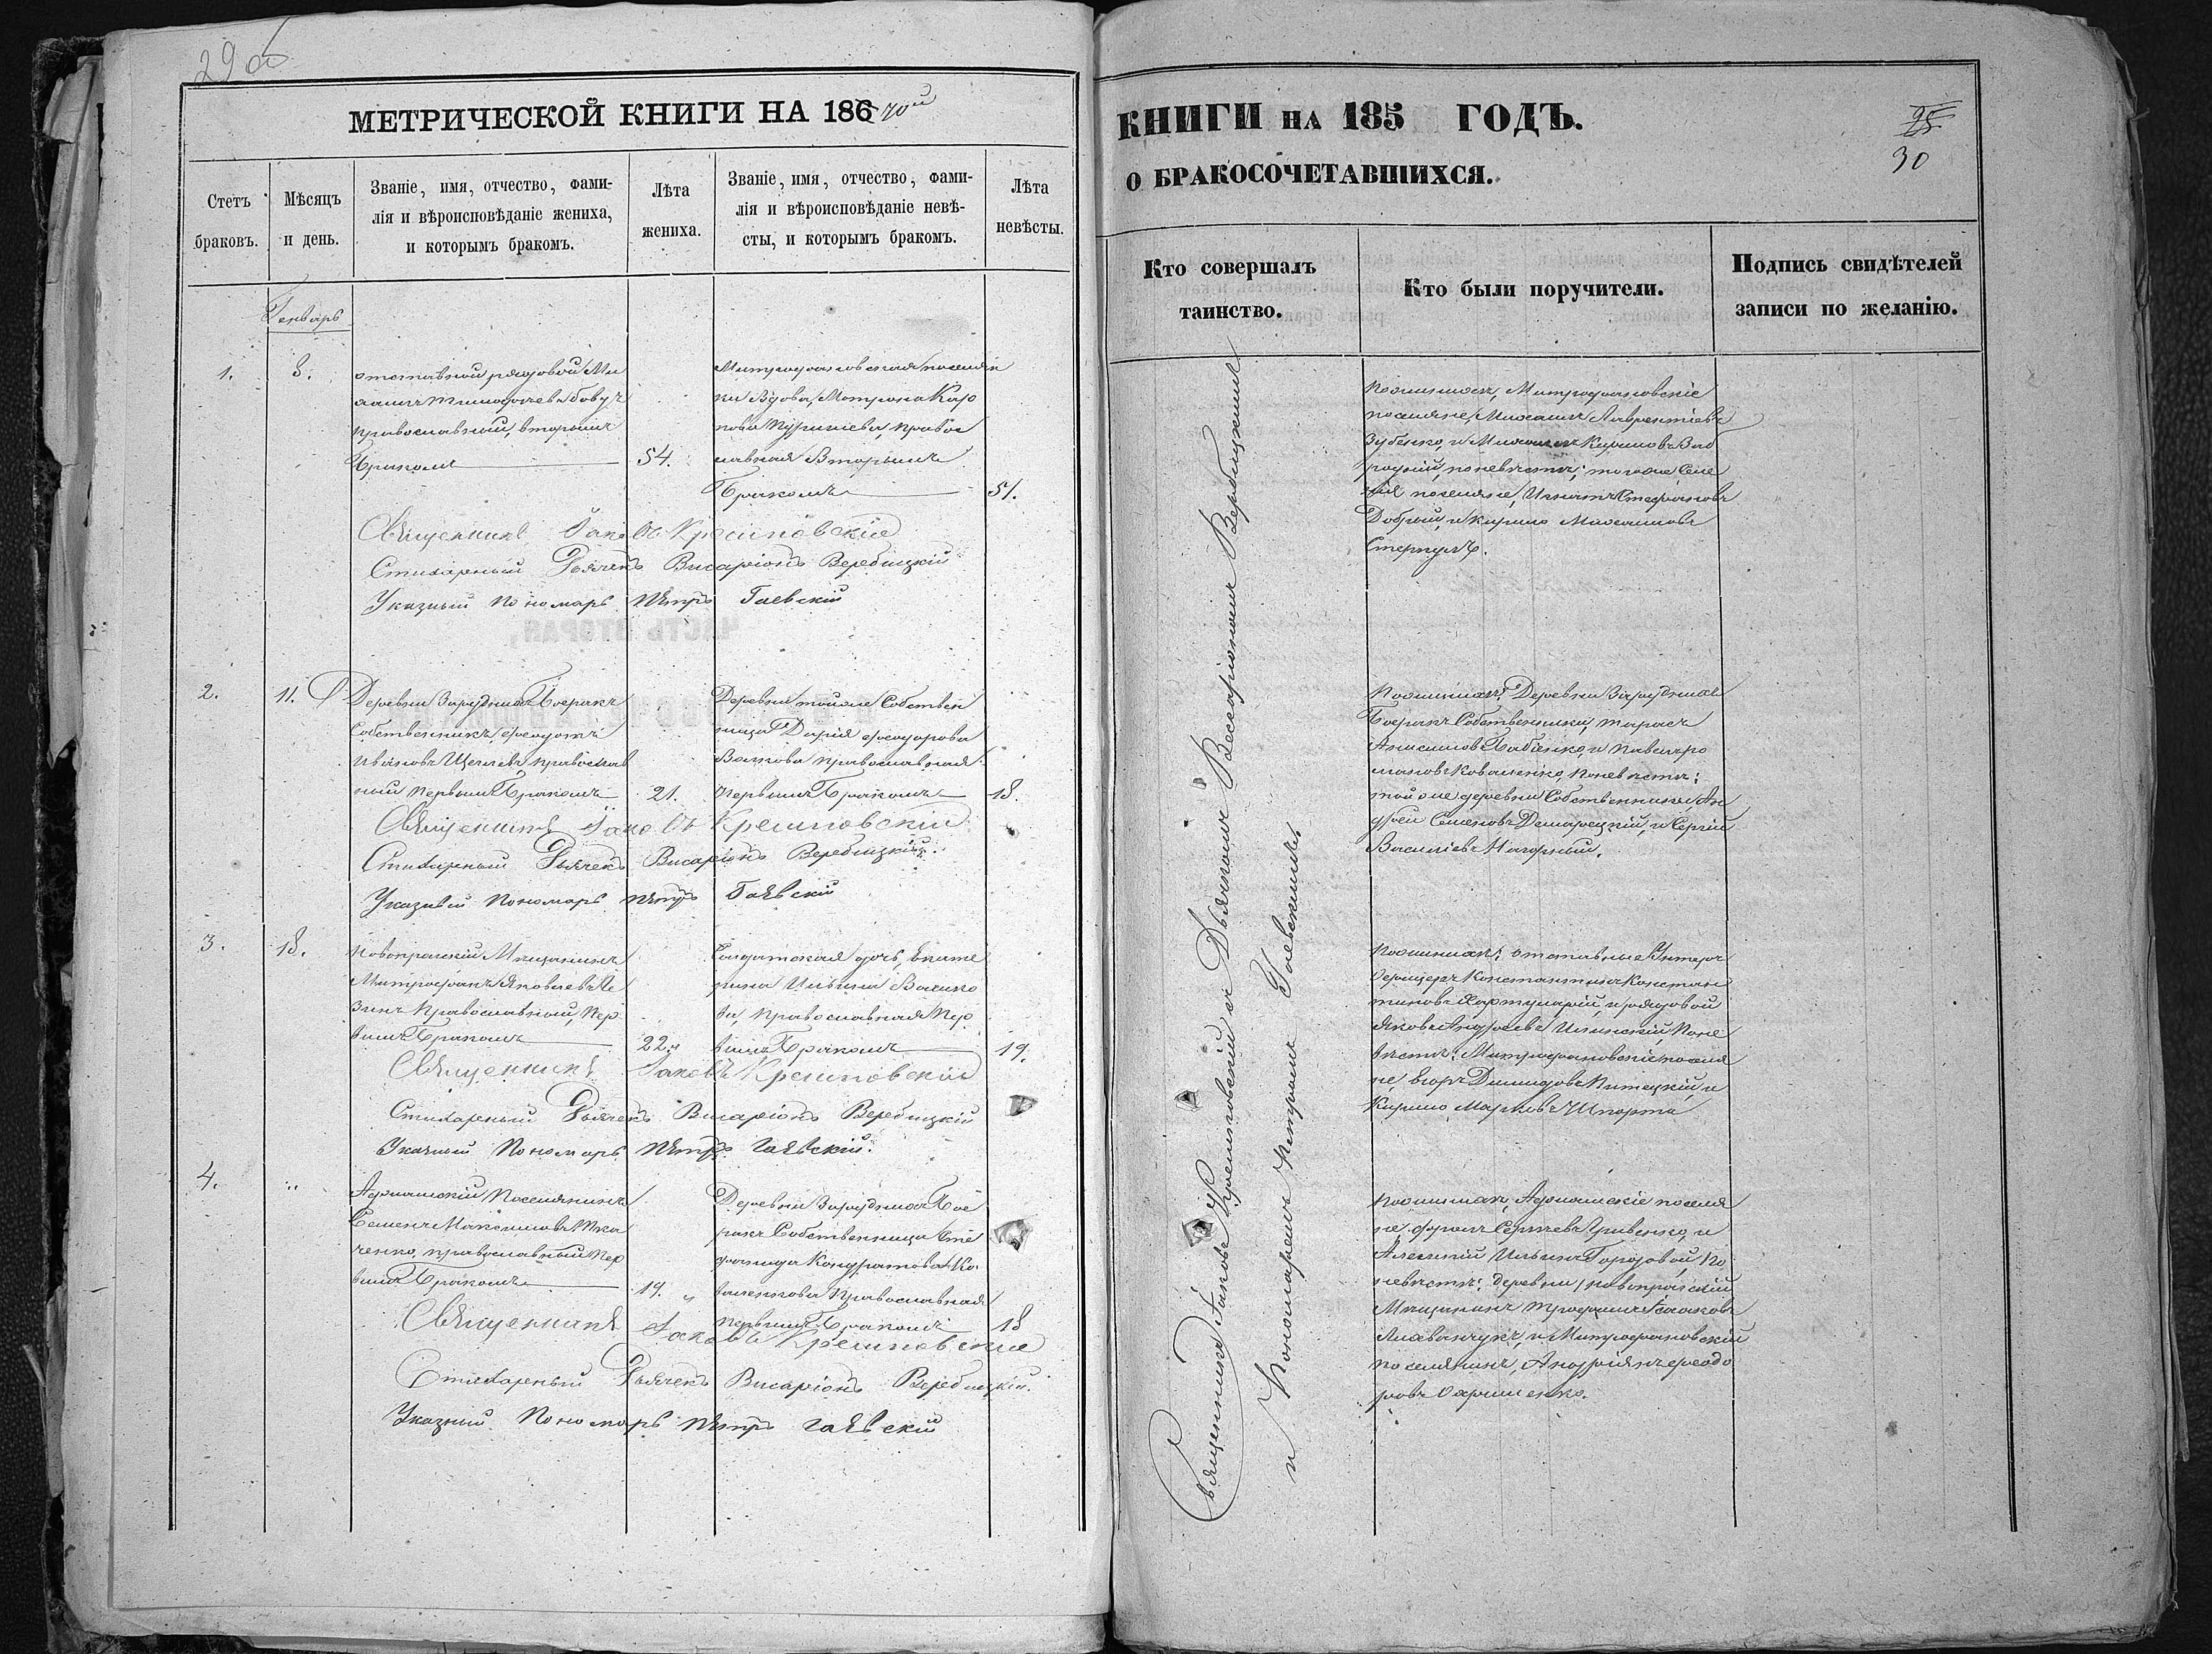 29 об
МЕТРИЧЕСКОЙ КНИГИ НА 186 70й
Счетъ браковъ.
Мѣсяцъ и день.
Званіе, имя, отчество, фами-
лія и вѣроисповѣданіе жениха,
и которымъ бракомъ.
Лѣта жениха.
Званіе, имя, отчество, фами-
лія и вѣроисповѣданіе невѣ-
сты, и которымъ бракомъ.
Лѣта невѣсты.
Генварь
1.
8.
отставной рядовой Ми
хаилъ Тимофеевъ Бабу
православный, вторымъ
бракомъ
54.
Митрофановская поселян
ка Вдова, Матрона Кар
пова правос
лавная Вторымъ
Бракомъ
51.
Священникъ Іаковъ Крешновскій
Стихарный Дьячекъ Висаріонъ Вербицкій
Указный Пономарь Пётръ Гаевскій
2.
11.
Деревни Зарудная Боеракъ
Собственникъ, Феодотъ
Ивановъ православ
ный первымъ Бракомъ
21.
Деревни тойже Собствен
ница Дарія Феодорова
православная
первымъ Бракомъ
18.
Священникъ Іаковъ Крешновскій
Стихарный Дьячекъ Висаріонъ Вербицкій.
Указный Пономарь Пётръ Гаевскій
3.
18.
Новопражскій Мещанинъ
Митрофанъ Яковлевъ
Православный, Пер
вымъ Бракомъ
22.
Солдатская дочь, Екате
рина Ильина
ва, православная Пер
вымъ Бракомъ
19.
Священникъ Іаковъ Крешновскій
Стихарный Дьячекъ Висаріонъ Вербицкій
Указный Пономарь Пётръ Гаевскій.
4.
"
Поселянинъ
Семенъ Максимовъ Тка
ченко, православный Пер
вымъ Бракомъ
19.
Деревни Зарудная Бое
ракъ Собственница Сте
фанида Кондратова Ко
валенкова Православная
первымъ Бракомъ
18
Священникъ Іаковъ Крешновскій
Стихарный Дьячекъ Висаріонъ Вербицкій.
Указный Пономарь Пётръ Гаевскій
КНИГИ НА 185 ГОДЪ.
О БРАКОСОЧЕТАВШИХСЯ.
25
30
Кто совершалъ
таинство.
Кто были поручители.
Подпись свидѣтелей
записи по желанію.
Священникъ Іаковъ Крешновскій съ Дьячкомъ Виссаріономъ Вербицкимъ
и Пономаремъ Петромъ Гаевскимъ
По женихѣ, Митрофановскіе
поселяне, Михаилъ Лаврентіевъ
Зубенко, и Михаилъ Кириловъ Заб
родній, по невѣстѣ; тогоже Селе
нія поселяне, Игнатъ Стефановъ
Добрый, и Кирило Михаиловъ
По женихѣ; Деревни Зарудная
Боеракъ Собственники, Тарасъ
Анисимовъ Бабенко, и Павелъ Ро
мановъ Коваленко, по невѣстѣ:
тойже деревни Собственники Ан
дрей Семеновъ и Сергій
Василіевъ Нагорный.
По женихѣ; отставные Унтеръ
Офицеръ Константинъ Констан
тиновъ и рядовой
Яковъ Андреевъ по не
вѣстѣ; Митрофановскіе поселя
не, Егоръ Демидовъ и
Кирило Марковъ
По женихѣ, поселя
не, Сергѣевъ Гривенко, и
Алексій Ильинъ Городовой, по
невѣстѣ: деревни, новопражскій
Мещанинъ Трофимъ Исааковъ
и Митрофановскій
поселянинъ, Андріянъ Феодо
ровъ